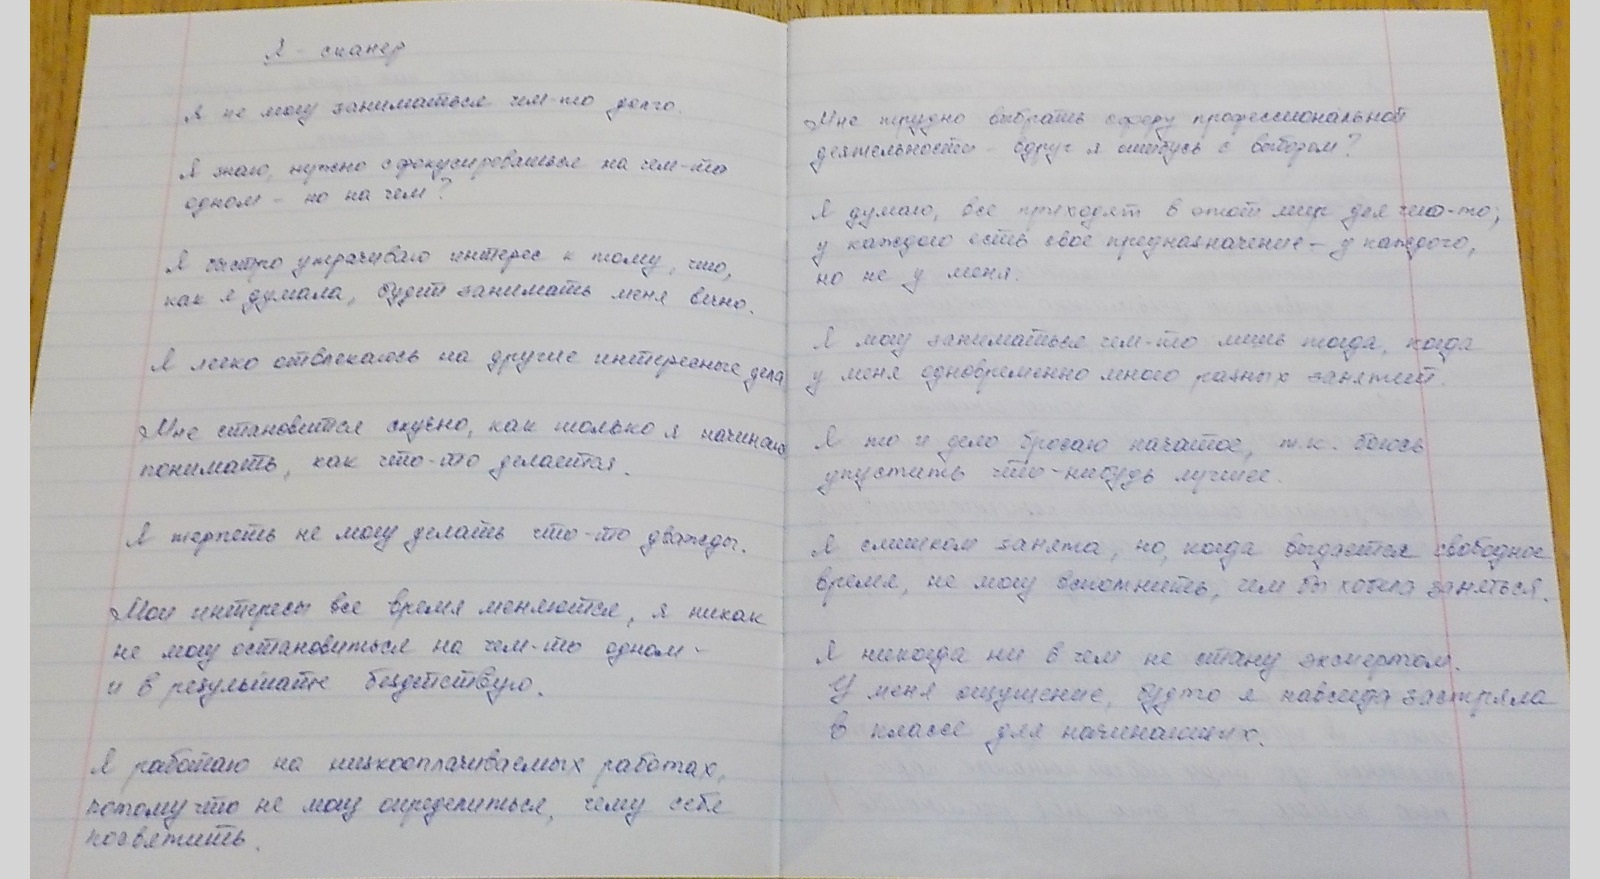 Я - сканер
Я не могу заниматься чем-то долго.
Я знаю, нужно сфокусироваться на чем-то
одном - но на чем?
Я быстро утрачиваю интерес к тому, что,
как я думала, будет занимать меня вечно.
Я легко отвлекаюсь на другие интересные дела
Мне становится скучно, как только я начинаю
понимать, как что-то делается.
Я терпеть не могу делать что-то дважды.
Мои интересы все время меняются, я никак
не могу остановиться на чем-то одном -
и в результате бездействую.
Я работаю на низкооплачиваемых работах,
потому что не могу определиться, чему себя
посвятить.
Мне трудно выбрать сферу профессиональной
деятельности - вдруг я ошибусь с выбором?
Я думаю, все приходят в этот мир для чего-то;
у каждого есть свое предназначение - у каждого,
но не у меня.
Я могу заниматься чем-то лишь тогда, когда
у меня одновременно много разных занятий.
Я то и дело бросаю начатое, т.к. боюсь
упустить что-нибудь лучшее.
Я слишком занята, но, когда выдается свободное
время, не могу вспомнить, чем бы хотела заняться.
Я никогда ни в чем не стану экспертом.
У меня ощущение, будто я навсегда застряла
в классе для начинающих.